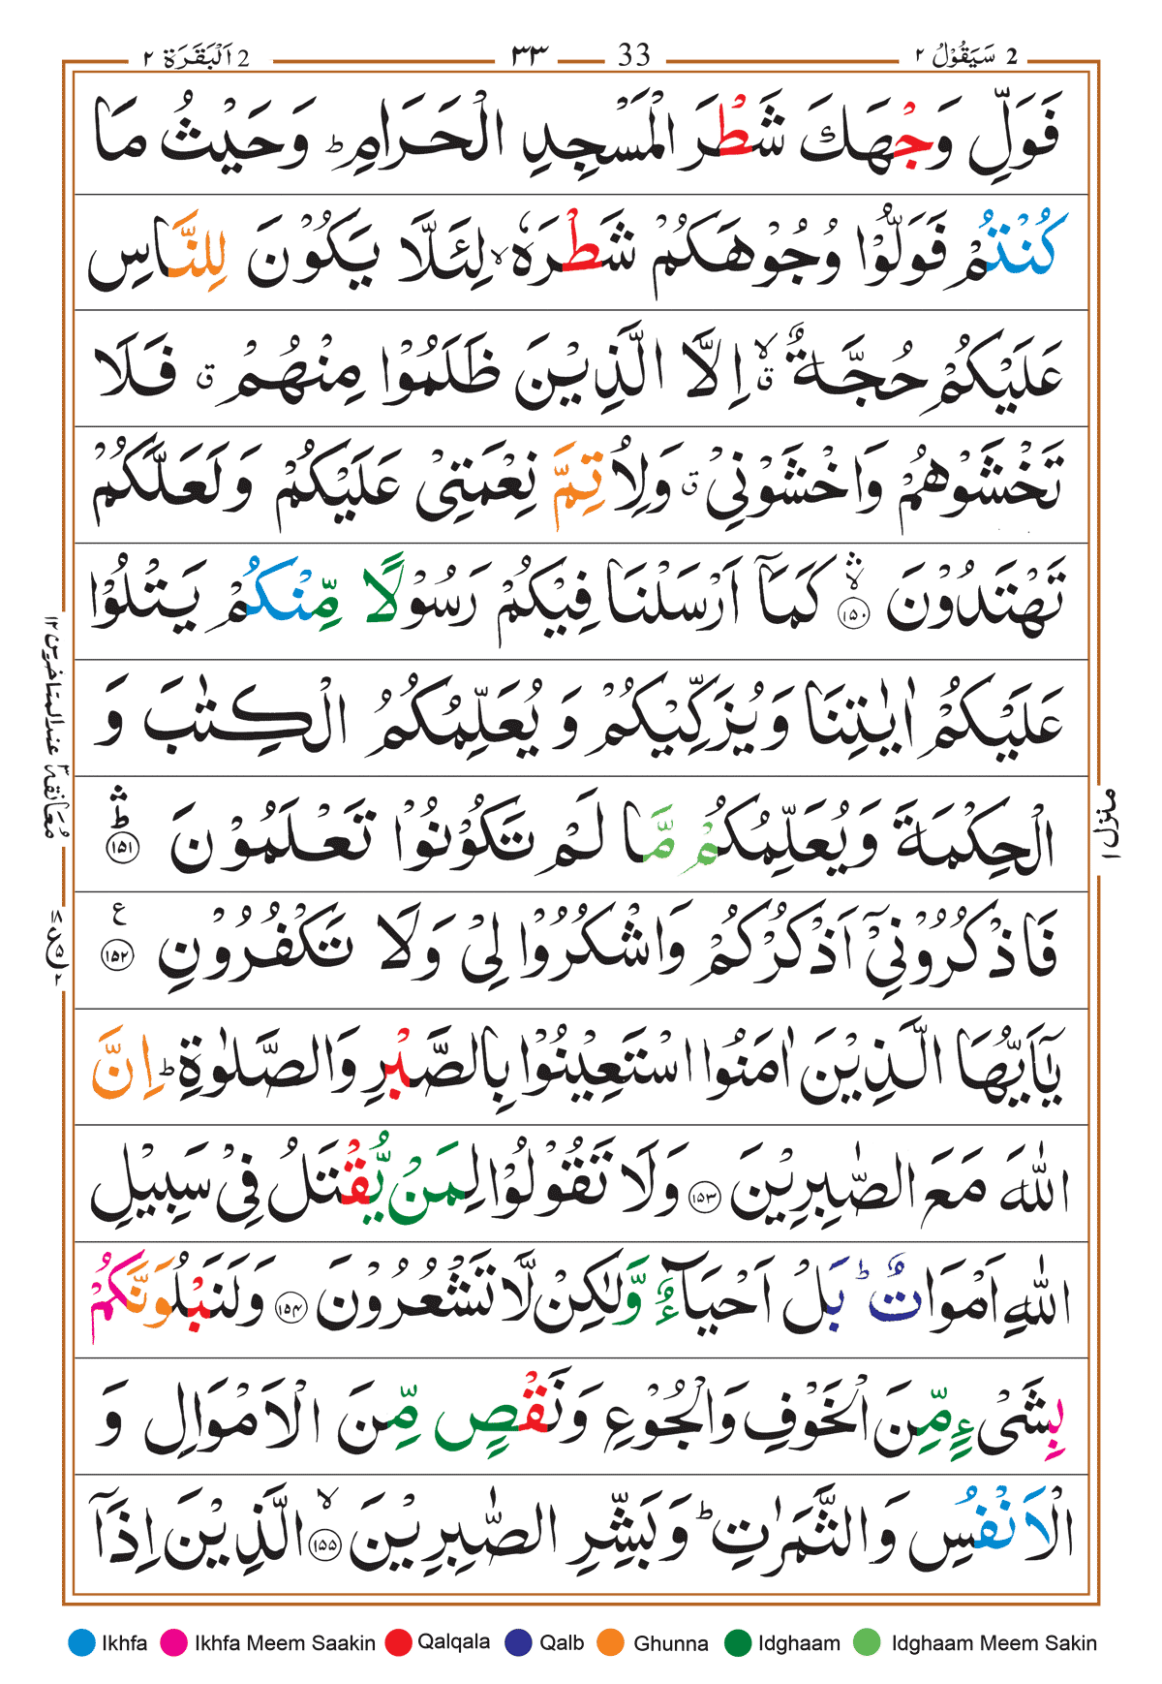 2 سَيَقُوْلُ ٢ 33 ٣٣ 2 اَلْبَقَرَة ٢
فَوَلِّ وَجْهَكَ شَطْرَ الْمَسْجِدِ الْحَرَامِ ؕ وَحَيْثُ مَا
كُنْتُمْ فَوَلُّوْا وُجُوْهَكُمْ شَطْرَهٗ ۙ لِئَلَّا يَكُوْنَ لِلنَّاسِ
عَلَيْكُمْ حُجَّةٌ ۙۗ اِلَّا الَّذِيْنَ ظَلَمُوْا مِنْهُمْ ۗ فَلَا
تَخْشَوْهُمْ وَاخْشَوْنِيْ ۗ وَلِاُتِمَّ نِعْمَتِيْ عَلَيْكُمْ وَلَعَلَّكُمْ
تَهْتَدُوْنَ ۙۛ ﴿١٥٠﴾ كَمَاۤ اَرْسَلْنَا فِيْكُمْ رَسُوْلًا مِّنْكُمْ يَتْلُوْا
عَلَيْكُمْ اٰيٰتِنَا وَيُزَكِّيْكُمْ وَيُعَلِّمُكُمُ الْكِتٰبَ وَ
الْحِكْمَةَ وَيُعَلِّمُكُمْ مَّا لَمْ تَكُوْنُوْا تَعْلَمُوْنَ ؕۛ ﴿١٥١﴾
فَاذْكُرُوْنِيْۤ اَذْكُرْكُمْ وَاشْكُرُوْا لِيْ وَلَا تَكْفُرُوْنِ ﴿١٥٢﴾ ع
يٰۤاَيُّهَا الَّذِيْنَ اٰمَنُوا اسْتَعِيْنُوْا بِالصَّبْرِ وَالصَّلٰوةِ ؕ اِنَّ
اللّٰهَ مَعَ الصّٰبِرِيْنَ ﴿١٥٣﴾ وَلَا تَقُوْلُوْا لِمَنْ يُّقْتَلُ فِيْ سَبِيْلِ
اللّٰهِ اَمْوَاتٌ ؕ بَلْ اَحْيَآءٌ وَّلٰكِنْ لَّا تَشْعُرُوْنَ ﴿١٥٤﴾ وَلَنَبْلُوَنَّكُمْ
بِشَيْءٍ مِّنَ الْخَوْفِ وَالْجُوْعِ وَنَقْصٍ مِّنَ الْاَمْوَالِ وَ
الْاَنْفُسِ وَالثَّمَرٰتِ ؕ وَبَشِّرِ الصّٰبِرِيْنَ ۙ ﴿١٥٥﴾ الَّذِيْنَ اِذَاۤ
مُعَانقة ٣ عند المتاخرين ١٢
منزل ١
Ikhfa Ikhfa Meem Saakin Qalqala Qalb Ghunna Idghaam Idghaam Meem Sakin